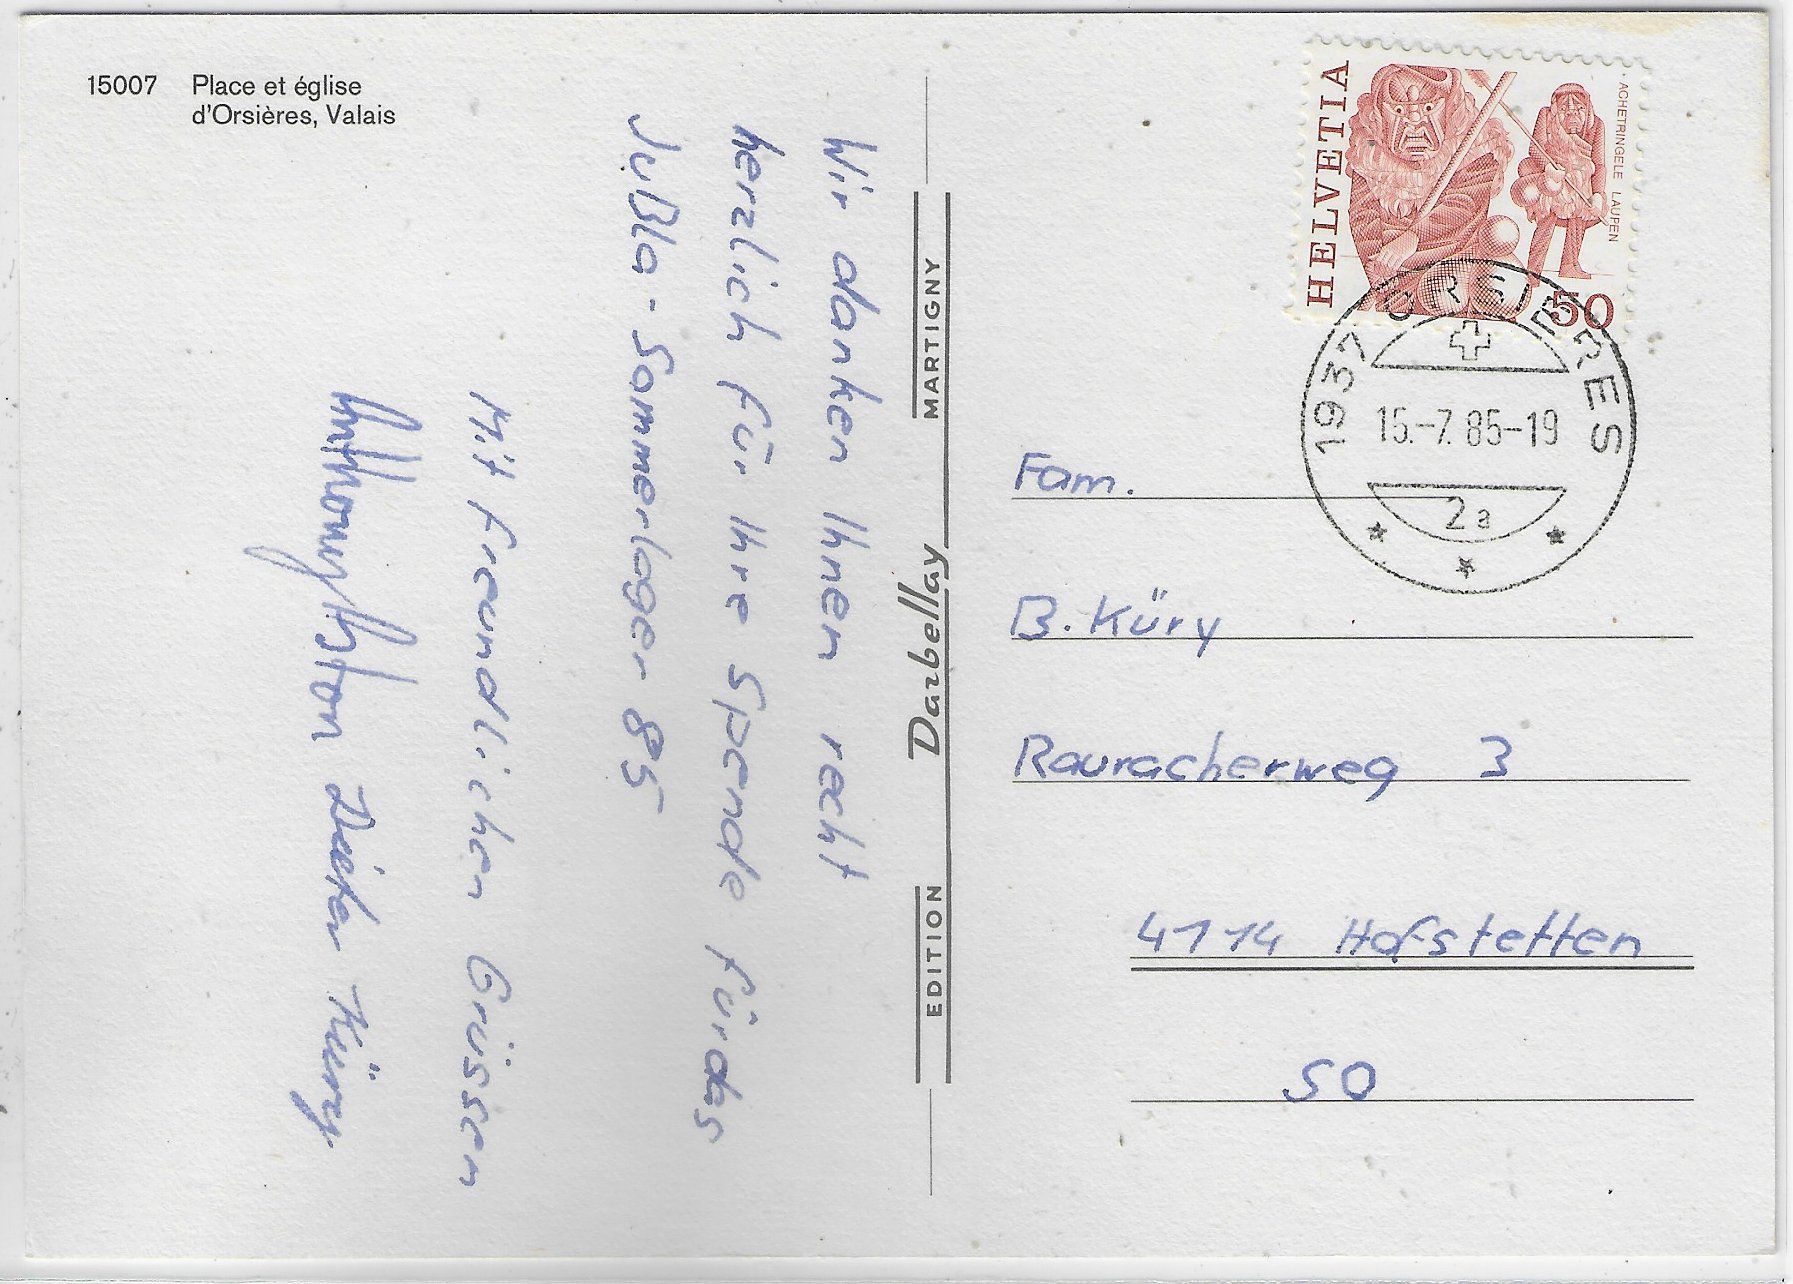 15007 Place et église
d'Orsières, Valais
Wir danken Ihnen recht
herzlich für Ihre Spende für das
JuBla-Sommerlager 85
Mit freundlichen Grüssen
Dieter Küry
EDITION Darbellay MARTIGNY
HELVETIA
ACHETRINGELE LAUPEN
50
1937 ORSIERES
15.-7.85-19
2a
Fam.
B. Küry
Rauracherweg 3
4114 Hofstetten
SO